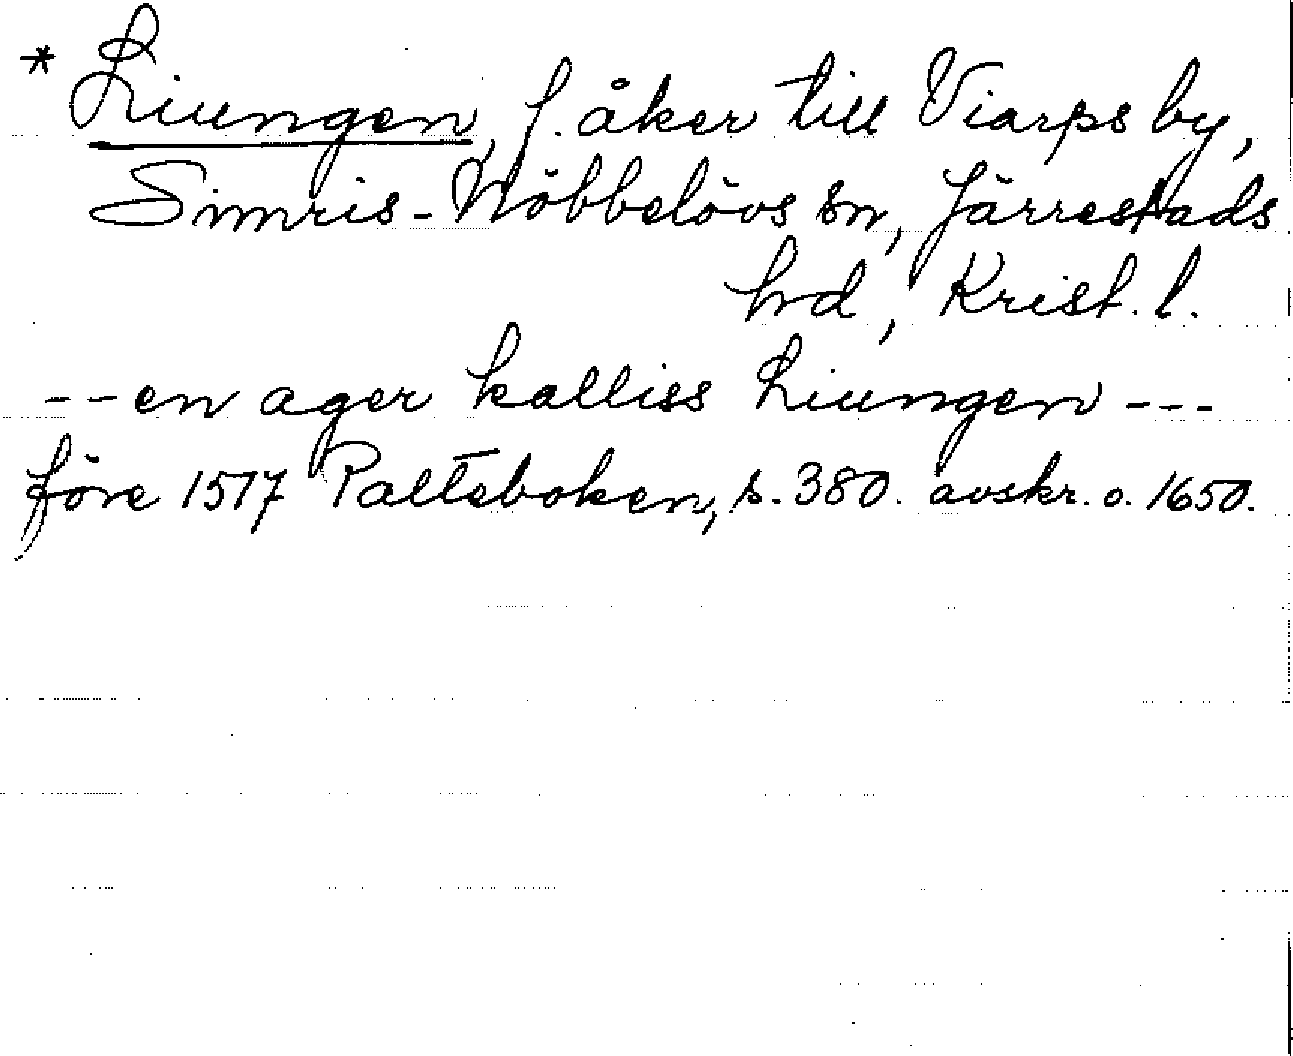 * Liungen, f. åker till Viarps by,
Simris-Nöbbelövs sn, Järrestads
hrd, Krist. l.
-- en ager kalliss Liungen ---
före 1517 Palteboken, s. 380. avskr. o. 1650.